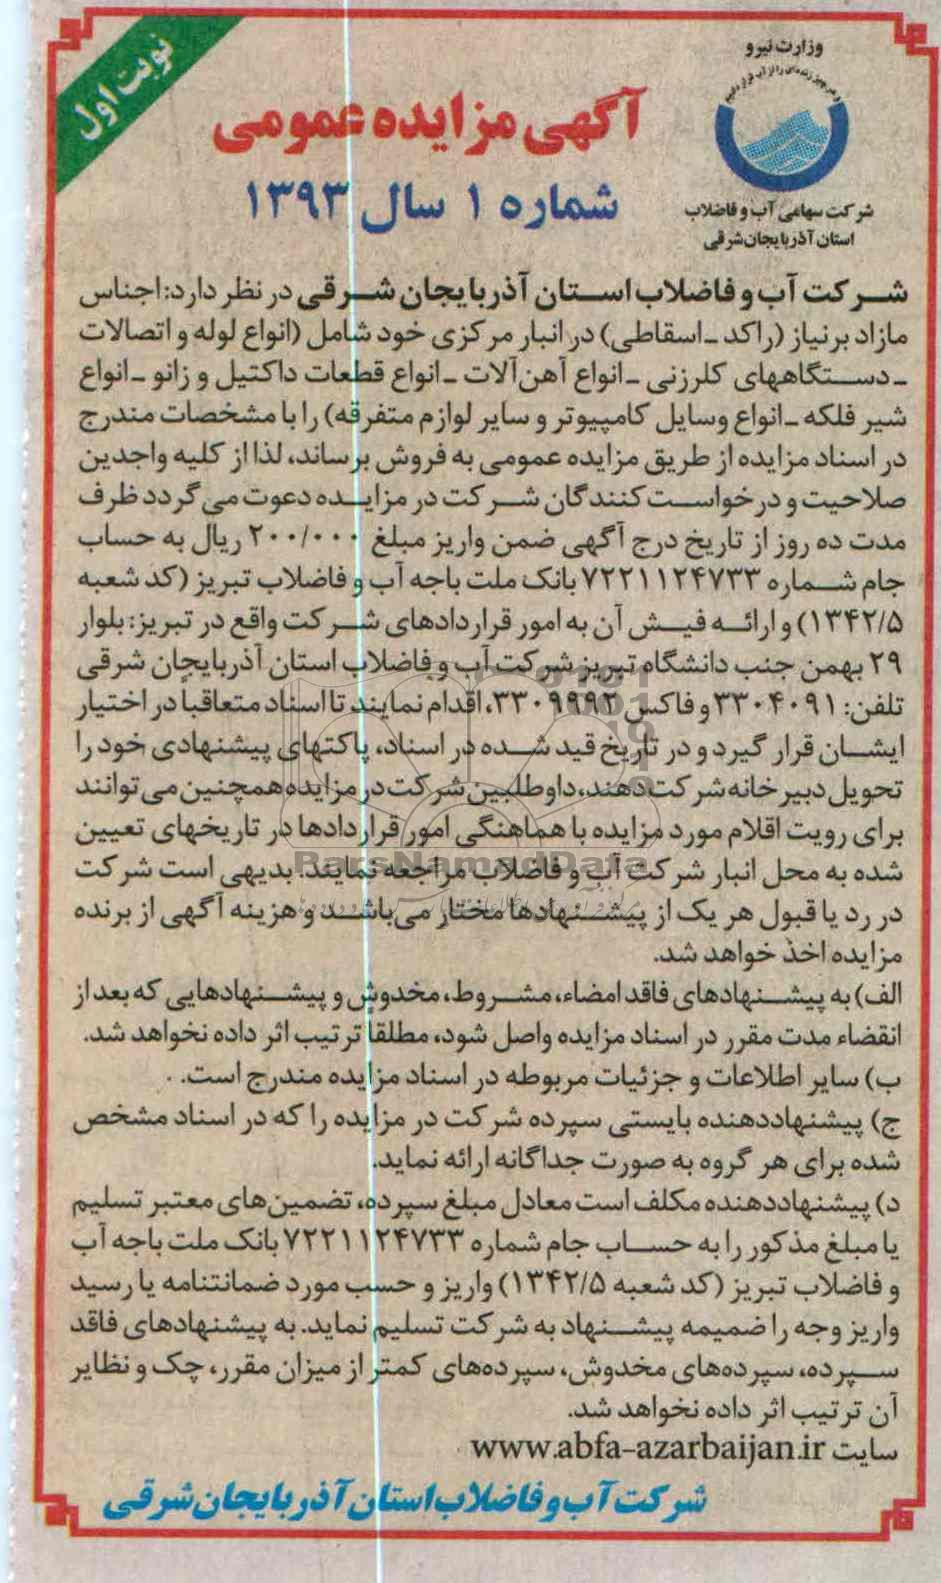 نوبت اول
وزارت نیرو
شرکت سهامی آب و فاضلاب
استان آذربایجان شرقی
آگهی مزایده عمومی
شماره ۱ سال ۱۳۹۳
شرکت آب و فاضلاب استان آذربایجان شرقی در نظر دارد: اجناس
مازاد بر نیاز (راکد ـ اسقاطی) در انبار مرکزی خود شامل (انواع لوله و اتصالات
ـ دستگاههای کلرزنی ـ انواع آهن‌آلات ـ انواع قطعات داکتیل و زانو ـ انواع
شیر فلکه ـ انواع وسایل کامپیوتر و سایر لوازم متفرقه) را با مشخصات مندرج
در اسناد مزایده از طریق مزایده عمومی به فروش برساند، لذا از کلیه واجدین
صلاحیت و درخواست‌کنندگان شرکت در مزایده دعوت می‌گردد ظرف
مدت ده روز از تاریخ درج آگهی ضمن واریز مبلغ ۲۰۰/۰۰۰ ریال به حساب
جام شماره ۷۲۲۱۱۲۴۷۳۳ بانک ملت باجه آب و فاضلاب تبریز (کد شعبه
۱۳۴۲/۵) و ارائه فیش آن به امور قراردادهای شرکت واقع در تبریز: بلوار
۲۹ بهمن جنب دانشگاه تبریز شرکت آب و فاضلاب استان آذربایجان شرقی
تلفن: ۳۳۰۴۰۹۱ و فاکس ۳۳۰۹۹۹۲، اقدام نمایند تا اسناد متعاقباً در اختیار
ایشان قرار گیرد و در تاریخ قید شده در اسناد، پاکتهای پیشنهادی خود را
تحویل دبیرخانه شرکت دهند، داوطلبین شرکت در مزایده همچنین می‌توانند
برای رویت اقلام مورد مزایده با هماهنگی امور قراردادها در تاریخهای تعیین
شده به محل انبار شرکت آب و فاضلاب مراجعه نمایند. بدیهی است شرکت
در رد یا قبول هر یک از پیشنهادها مختار می‌باشد و هزینه آگهی از برنده
مزایده اخذ خواهد شد.
الف) به پیشنهادهای فاقد امضاء، مشروط، مخدوش و پیشنهادهایی که بعد از
انقضاء مدت مقرر در اسناد مزایده واصل شود، مطلقاً ترتیب اثر داده نخواهد شد.
ب) سایر اطلاعات و جزئیات مربوطه در اسناد مزایده مندرج است.
ج) پیشنهاددهنده بایستی سپرده شرکت در مزایده را که در اسناد مشخص
شده برای هر گروه به صورت جداگانه ارائه نماید.
د) پیشنهاددهنده مکلف است معادل مبلغ سپرده، تضمین‌های معتبر تسلیم
یا مبلغ مذکور را به حساب جام شماره ۷۲۲۱۱۲۴۷۳۳ بانک ملت باجه آب
و فاضلاب تبریز (کد شعبه ۱۳۴۲/۵) واریز و حسب مورد ضمانتنامه یا رسید
واریز وجه را ضمیمه پیشنهاد به شرکت تسلیم نماید. به پیشنهادهای فاقد
سپرده، سپرده‌های مخدوش، سپرده‌های کمتر از میزان مقرر، چک و نظایر
آن ترتیب اثر داده نخواهد شد.
سایت www.abfa-azarbaijan.ir
شرکت آب و فاضلاب استان آذربایجان شرقی
ParsNamadData